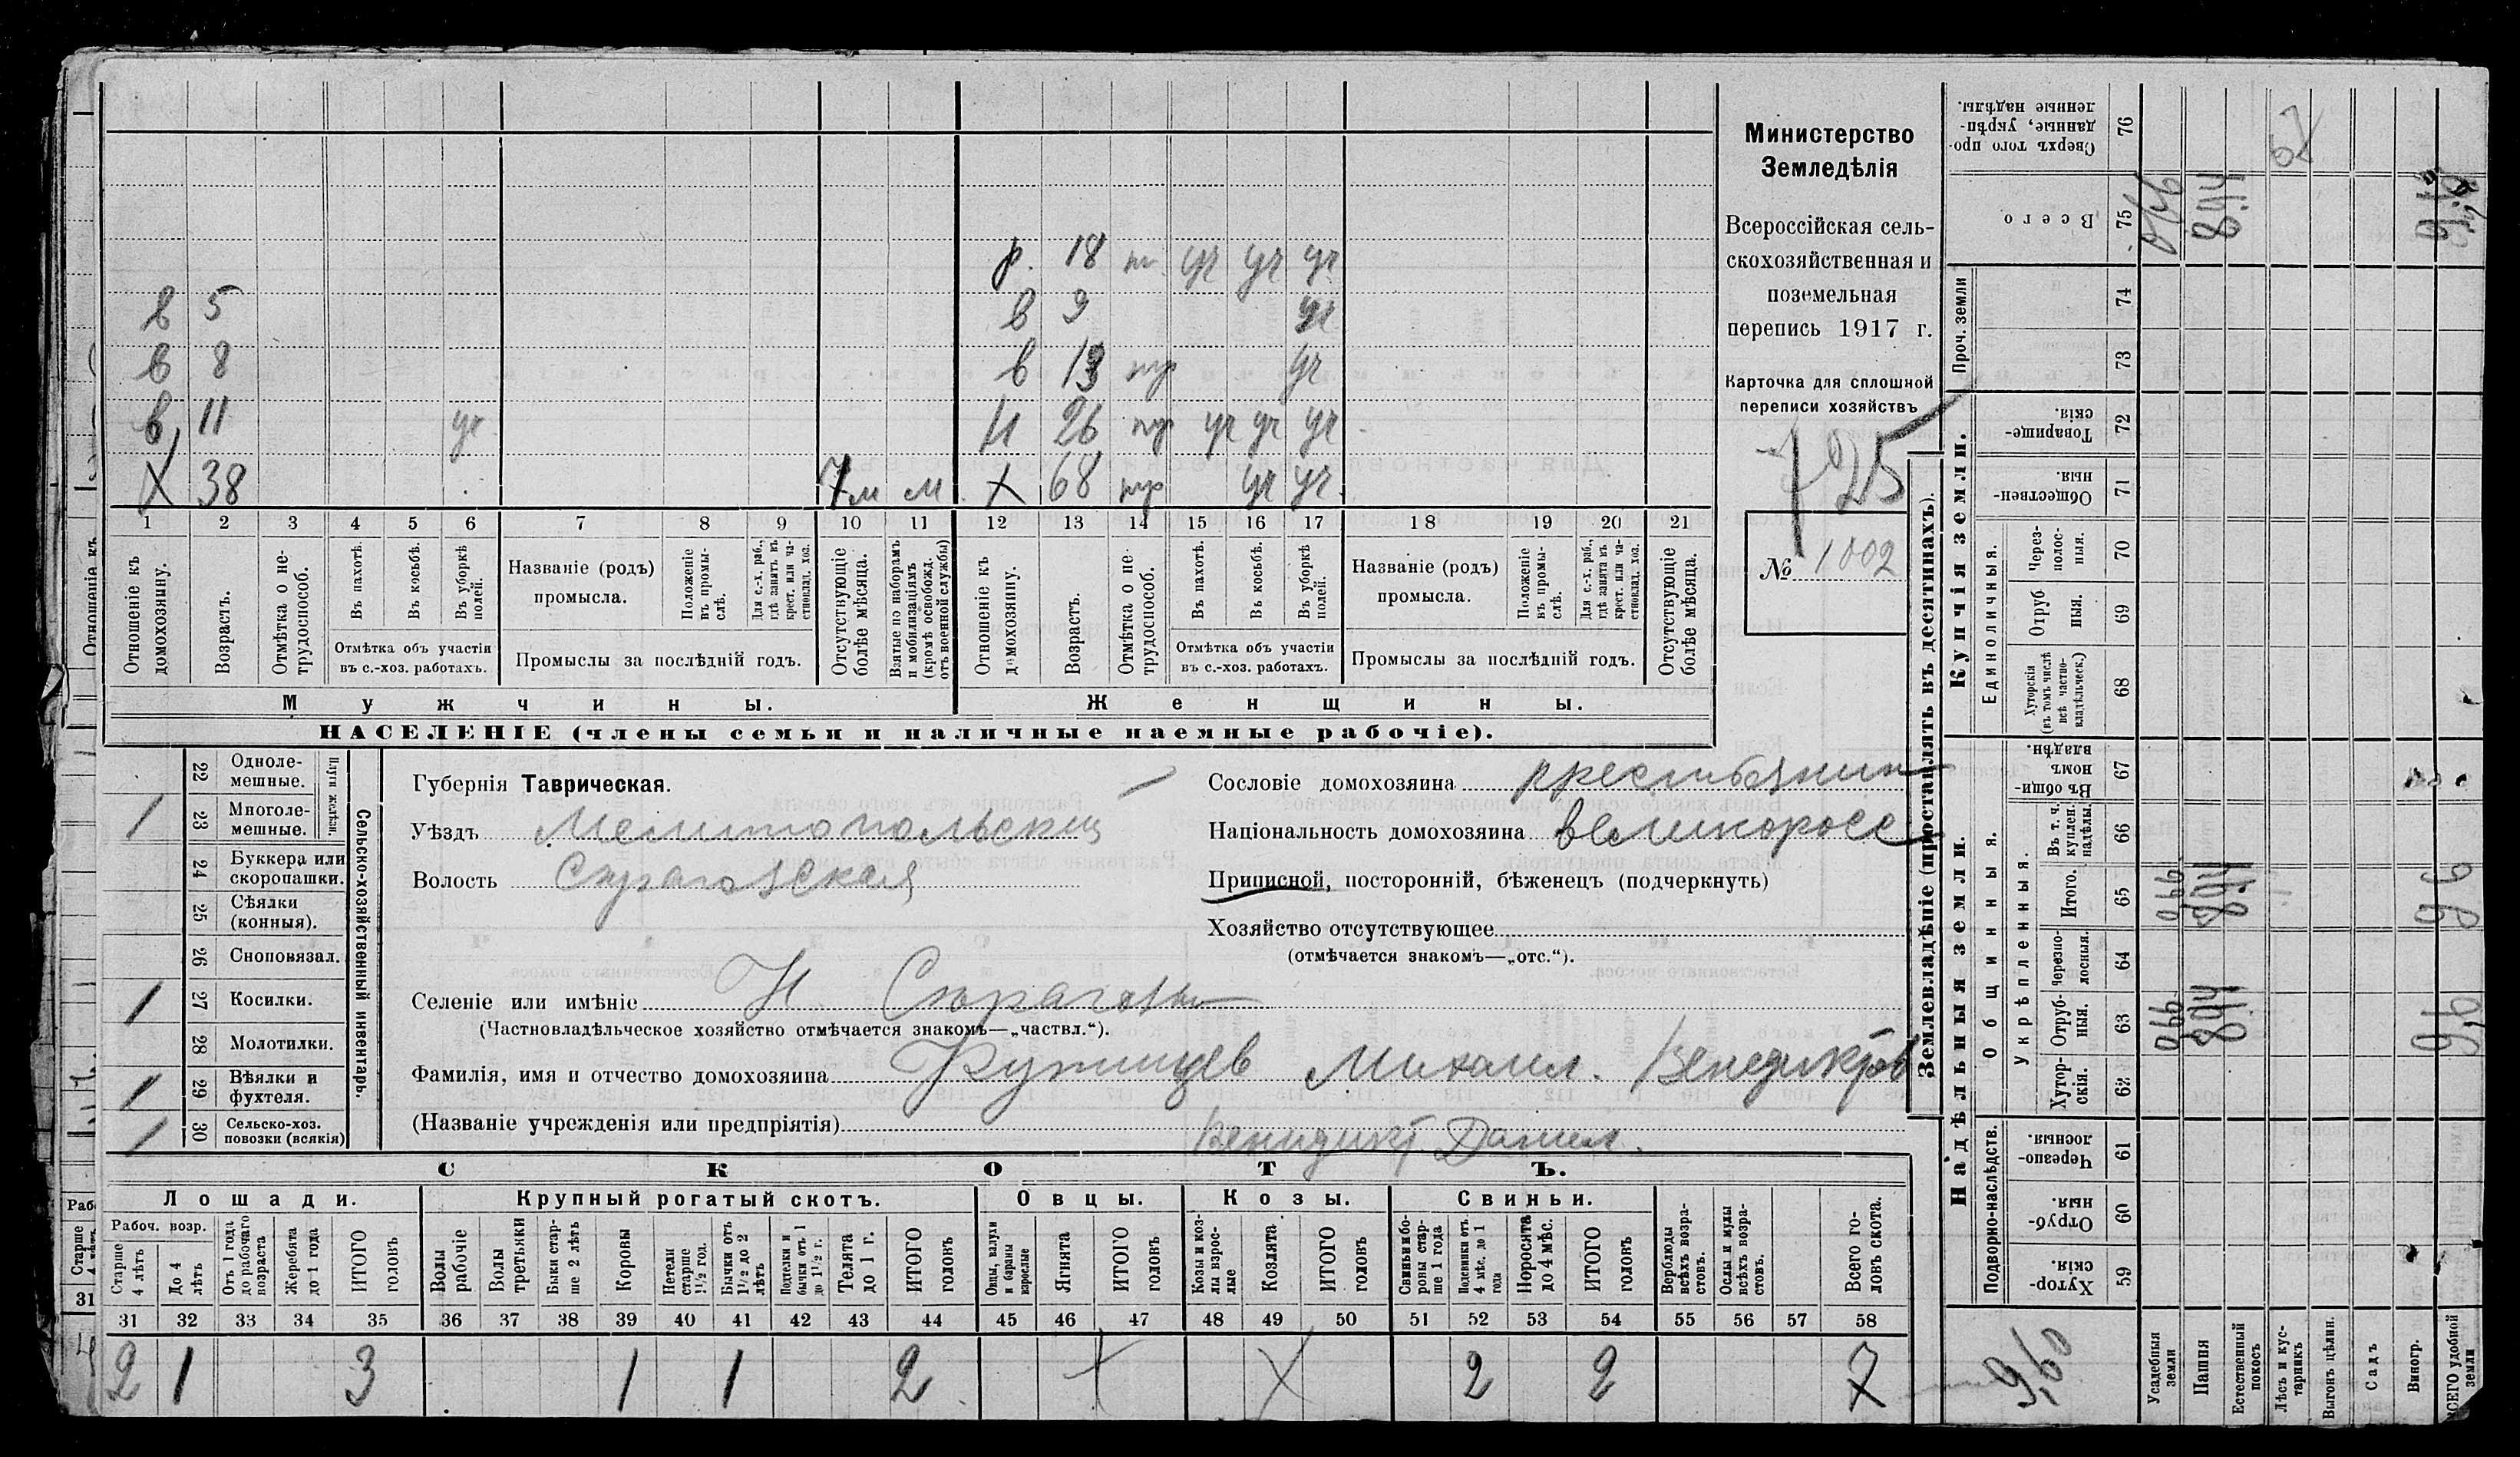 р. 18 т. уч уч уч
в 5 в 9 уч
в 8 в 13 нр уч
в 11 уч Н 26 нр уч уч уч
X 38 7м м. X 68 нр уч уч
1 2 3 4 5 6 7 8 9 10 11 12 13 14 15 16 17 18 19 20 21
Отношеніе къ домохозяину.
Возрастъ.
Отмѣтка о не-трудоспособ.
Въ пахотѣ.
Въ косьбѣ.
Въ уборкѣ полей.
Отмѣтка объ участіи въ с.-хоз. работахъ.
Названіе (родъ) промысла.
Положеніе въ промы-слѣ.
Для с.-х. раб., гдѣ занятъ въ крест. или ча-стновлад. хоз.
Промыслы за послѣдній годъ.
Отсутствующіе болѣе мѣсяца.
Взятые по наборамъ и мобилизаціямъ (кромѣ освобожд. отъ военной службы)
Отношеніе къ домохозяину.
Возрастъ.
Отмѣтка о не-трудоспособ.
Въ пахотѣ.
Въ косьбѣ.
Въ уборкѣ полей.
Отмѣтка объ участіи въ с.-хоз. работахъ.
Названіе (родъ) промысла.
Положеніе въ промы-слѣ.
Для с.-х. раб., гдѣ занята въ крест. или ча-стновлад. хоз.
Промыслы за послѣдній годъ.
Отсутствующіе болѣе мѣсяца.
Мужчины. Женщины.
НАСЕЛЕНІЕ (члены семьи и наличные наемные рабочіе).
Министерство
Земледѣлія
Всероссійская сель-
скохозяйственная и
поземельная
перепись 1917 г.
Карточка для сплошной
переписи хозяйствъ
№ 1002
22 Одноле-мешные.
1 23 Многоле-мешные.
Плуги желѣзн.
24 Буккера или скоропашки.
25 Сѣялки (конныя).
26 Сноповязал.
1 27 Косилки.
28 Молотилки.
1 29 Вѣялки и фухтеля.
1 30 Сельско-хоз. повозки (всякія)
Сельско-хозяйственный инвентарь.
Губернія Таврическая.
Уѣздъ Мелитопольский
Волость Строгавская
Селеніе или имѣніе Н Строгавы
(Частновладѣльческое хозяйство отмѣчается знакомъ—„частвл.“).
Фамилія, имя и отчество домохозяина Михаил. Венедиктов
(Названіе учрежденія или предпріятія)
Венидикт Данил.
Сословіе домохозяина крестьянин
Національность домохозяина великоросс
Приписной, посторонній, бѣженецъ (подчеркнуть)
Хозяйство отсутствующее
(отмѣчается знакомъ—„отс.“).
СКОТЪ.
Лошади. Крупный рогатый скотъ. Овцы. Козы. Свиньи.
Рабоч. возр.
Старше 4 лѣтъ
До 4 лѣтъ
Отъ 1 года до рабочаго возраста
Жеребята до 1 года
ИТОГО головъ
Волы рабочіе
Волы третьяки
Быки стар-ше 2 лѣтъ
Коровы
Нетели старше 1½ год.
Бычки отъ 1½ до 2 лѣтъ
Подтелки и бычки отъ 1 до 1½ г.
Телята до 1 г.
ИТОГО головъ
Овцы, валухи и бараны взрослые
Ягнята
ИТОГО головъ
Козы и коз-лы взрос-лые
Козлята.
ИТОГО головъ
Свиньи и бо-ровы стар-ше 1 года
Подсвинки отъ 4 мѣс. до 1 года
Поросята до 4 мѣс.
ИТОГО головъ
Верблюды всѣхъ возра-стовъ.
Ослы и мулы всѣхъ возра-стовъ.
Всего го-ловъ скота.
31 32 33 34 35 36 37 38 39 40 41 42 43 44 45 46 47 48 49 50 51 52 53 54 55 56 57 58
2 1 3 1 1 2 X X 2 2 7
Землевладѣніе (проставлять въ десятинахъ).
Сверхъ того про-данные, укрѣп-ленные надѣлы. 76
Всего 75
Проч. земли 74 73
Купчія земли.
Товарище-скія. 72
Обществен-ныя 71
Единоличныя.
Через-полос-ныя. 70
Отруб ныя. 69
Хуторскія (въ томъ числѣ всѣ частно-владѣльческ.) 68
Надѣльныя земли.
Общинныя.
Въ общи-номъ владѣн. 67
Укрѣпленныя.
Въ т. ч. куплен. надѣлы. 66
Итого. 65
Черезпо-лосныя. 64
Отруб-ныя. 63
Хутор-скія. 62
Подворно-наслѣдств.
Черезпо-лосныя. 61
Отруб-ныя. 60
Хутор-скія. 59
9,60
Усадебныя земли
Пашня
Естественный покосъ
Лѣсъ и кус-тарникъ
Выгонъ цѣлин.
Садъ
Виногр.
ВСЕГО удобной земли